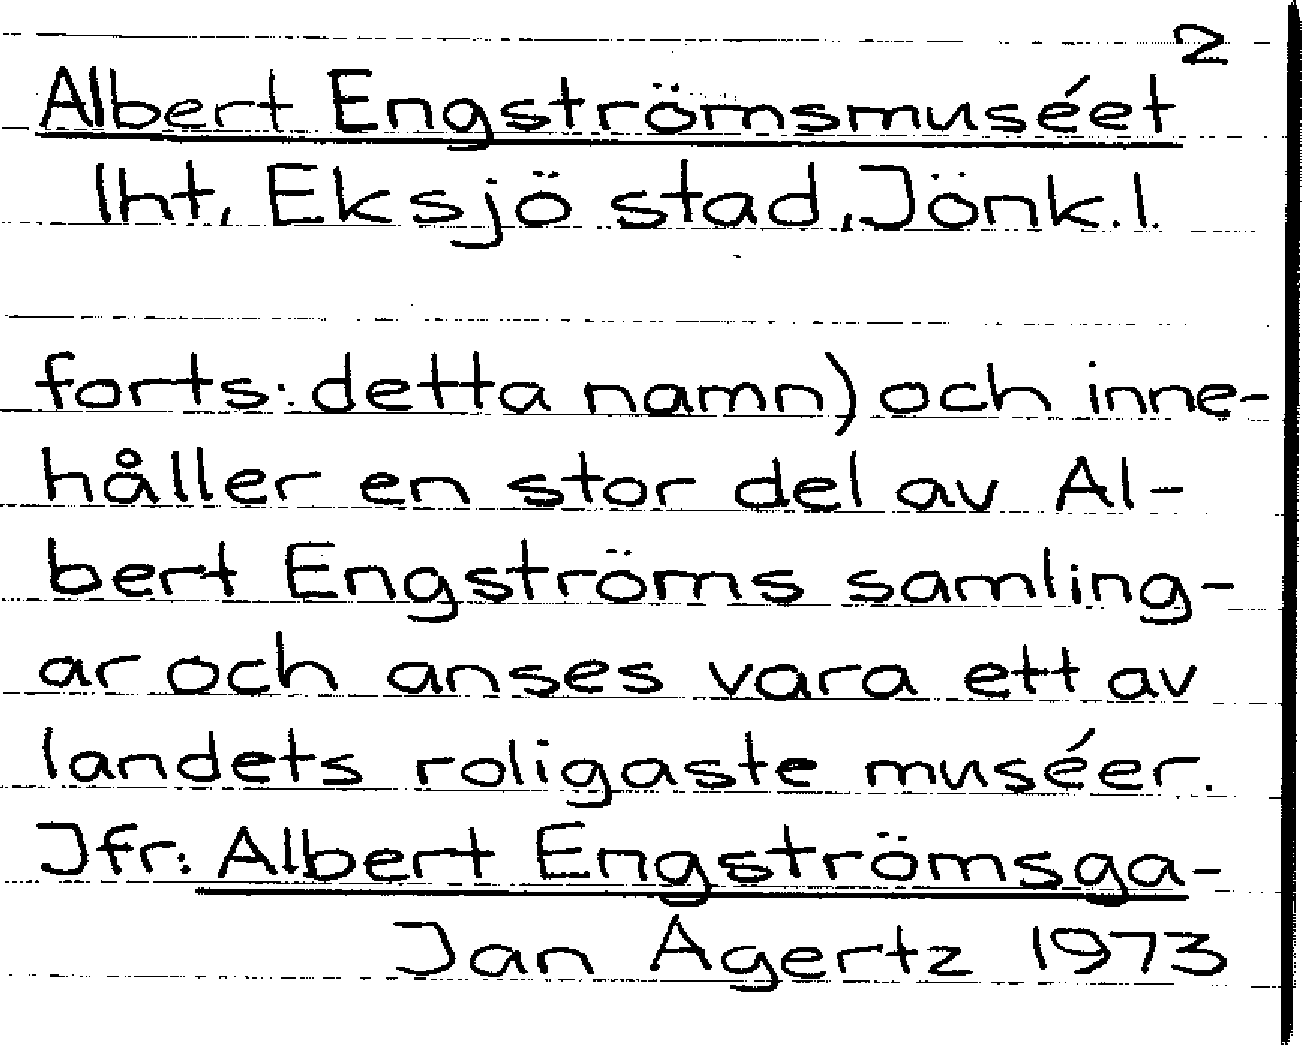 2
Albert Engströmsmuséet
lht, Eksjö stad, Jönk.l.
forts: detta namn) och inne-
håller en stor del av Al-
bert Engströms samling-
ar och anses vara ett av
landets roligaste muséer.
Jfr: Albert Engströmsga-
Jan Agertz 1973